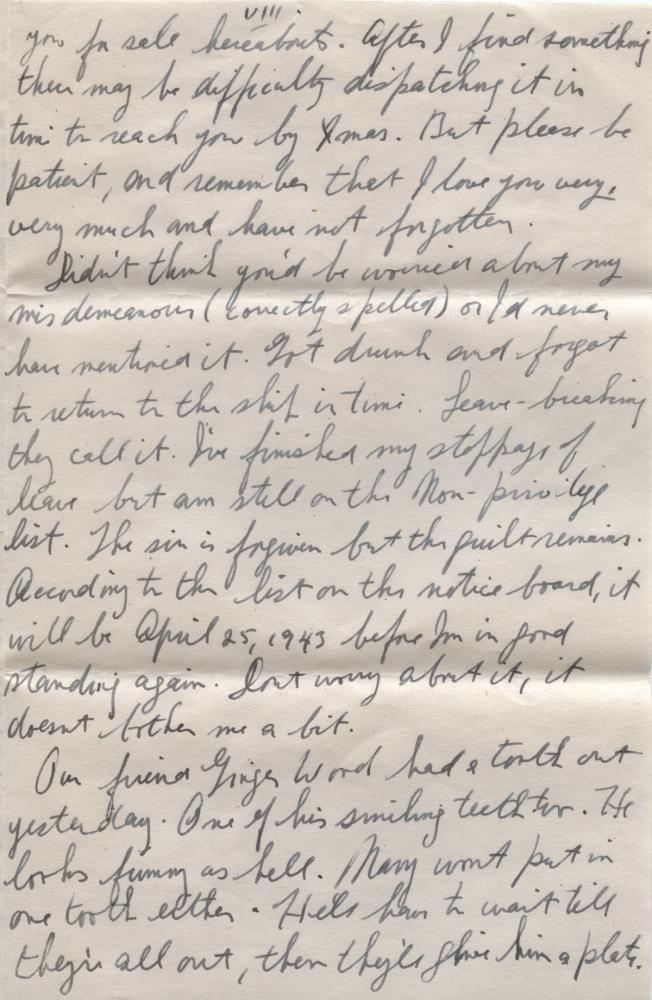 VIII
you for sale hereabouts. After I find something
there may be difficulty dispatching it in
time to reach you by Xmas. But please be
patient, and remember that I love you very,
very much and have not forgotten.
Didn't think you'd be worried about my
misdemeanour (correctly spelled) or I'd never
have mentioned it. Got drunk and forgot
to return to the ship in time. Leave-breaking
they call it. I've finished my stoppage of
leave but am still on the Non-privilege
list. The sin is forgiven but the guilt remains.
According to the list on the notice board, it
will be April 25, 1943 before I'm in good
standing again. Dont worry about it, it
doesnt bother me a bit.
Our friend Ginger Word had a tooth out
yesterday. One of his smiling teeth too. He
looks funny as hell. Navy wont put in
one tooth either. He'll have to wait till
they're all out, then they'll give him a plate.